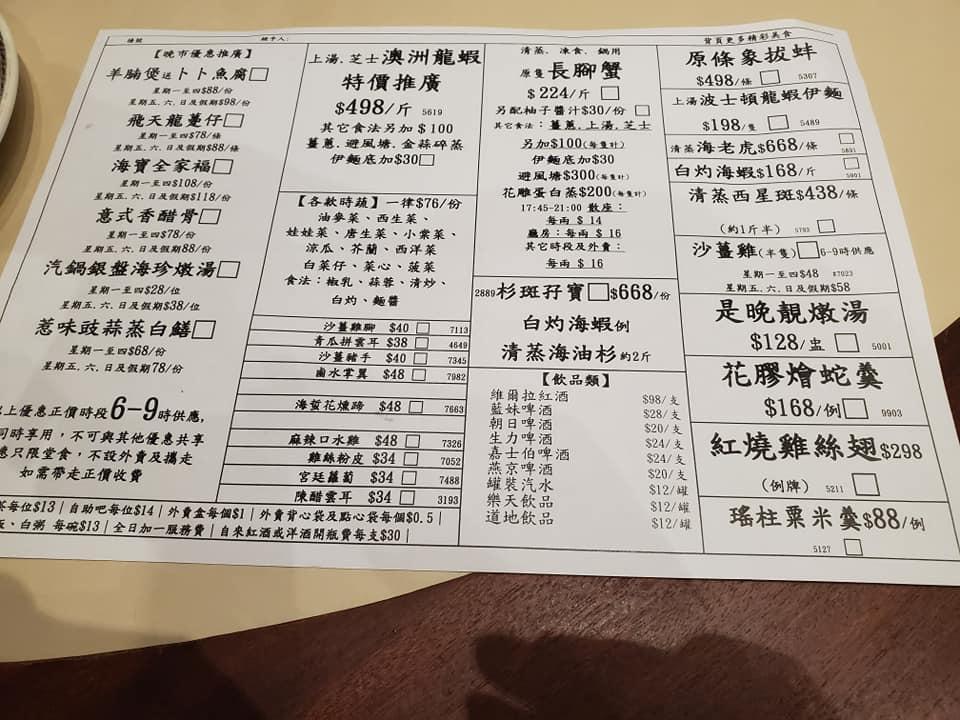 檯號
經手人：
背頁更多精彩美食
【晚市優惠推廣】
羊腩煲送卜卜魚腐□
星期一至四$88/份
星期五.六.日及假期$98/份
飛天龍躉仔□
星期一至四$78/條
星期五.六.日及假期$88/條
海寶全家福□
星期一至四$108/份
星期五.六.日及假期$118/份
意式香醋骨□
星期一至四$78/份
星期五.六.日及假期88/份
汽鍋銀盤海珍燉湯□
星期一至四$28/位
星期五.六.日及假期$38/位
惹味豉蒜蒸白鱔□
星期一至四$68/份
星期五.六.日及假期78/份
上優惠正價時段6-9時供應,
同時享用，不可與其他優惠共享
只限堂食，不設外賣及攜走
如需帶走正價收費
上湯.芝士澳洲龍蝦
特價推廣
$498/斤 5619
其它食法另加$100
薑蔥.避風塘.金蒜碎蒸
伊麵底加$30□
【各款時蔬】一律$76/份
油麥菜、西生菜、
娃娃菜、唐生菜、小棠菜、
涼瓜、芥蘭、西洋菜
白菜仔、菜心、菠菜
食法：椒乳、蒜蓉、清炒、
白灼、麵醬
沙薑雞腳 $40 □ 7113
青瓜拼雲耳 $38 □ 4649
沙薑豬手 $40 □ 7345
鹵水掌翼 $48 □ 7982
海蜇花燻蹄 $48 □ 7663
麻辣口水雞 $48 □ 7326
雞絲粉皮 $34 □ 7052
宮廷蘿蔔 $34 □ 7488
陳醋雲耳 $34 □ 3193
茶每位$13│自助吧每位$14│外賣盒每個$1│外賣背心袋及點心袋每個$0.5│
、白粥 每碗$13│全日加一服務費│自來紅酒或洋酒開瓶費每支$30│
清蒸、凍食、鍋用
原隻長腳蟹
$224/斤 □
另配柚子醬汁$30/份 □
其它食法：薑蔥.上湯.芝士
另加$100(每隻計)
伊麵底加$30
避風塘$300(每隻計)
花雕蛋白蒸$200(每隻計)
17:45-21:00 散座：
每兩 $ 14
廳房：每兩 $ 16
其它時段及外賣：
每兩 $ 16
2889杉斑孖寶□$668/份
白灼海蝦例
清蒸海油杉約2斤
【飲品類】
維爾拉紅酒 $98/支
藍妹啤酒 $28/支
朝日啤酒 $20/支
生力啤酒 $24/支
嘉士伯啤酒 $24/支
燕京啤酒 $20/支
罐裝汽水 $12/罐
樂天飲品 $12/罐
道地飲品 $12/罐
原條象拔蚌
$498/條 □ 5307
上湯波士頓龍蝦伊麵
$198/隻 □ 5489
清蒸海老虎$668/條 □
5831
白灼海蝦$168/斤 □
5901
清蒸西星斑$438/條
(約1斤半) 5793 □
沙薑雞(半隻)□6-9時供應
星期一至四$48 #7023
星期五.六.日及假期$58
是晚靚燉湯
$128/盅 □ 5001
花膠燴蛇羹
$168/例□ 9903
紅燒雞絲翅$298
(例牌) 5211 □
瑤柱粟米羹$88/例
5127 □